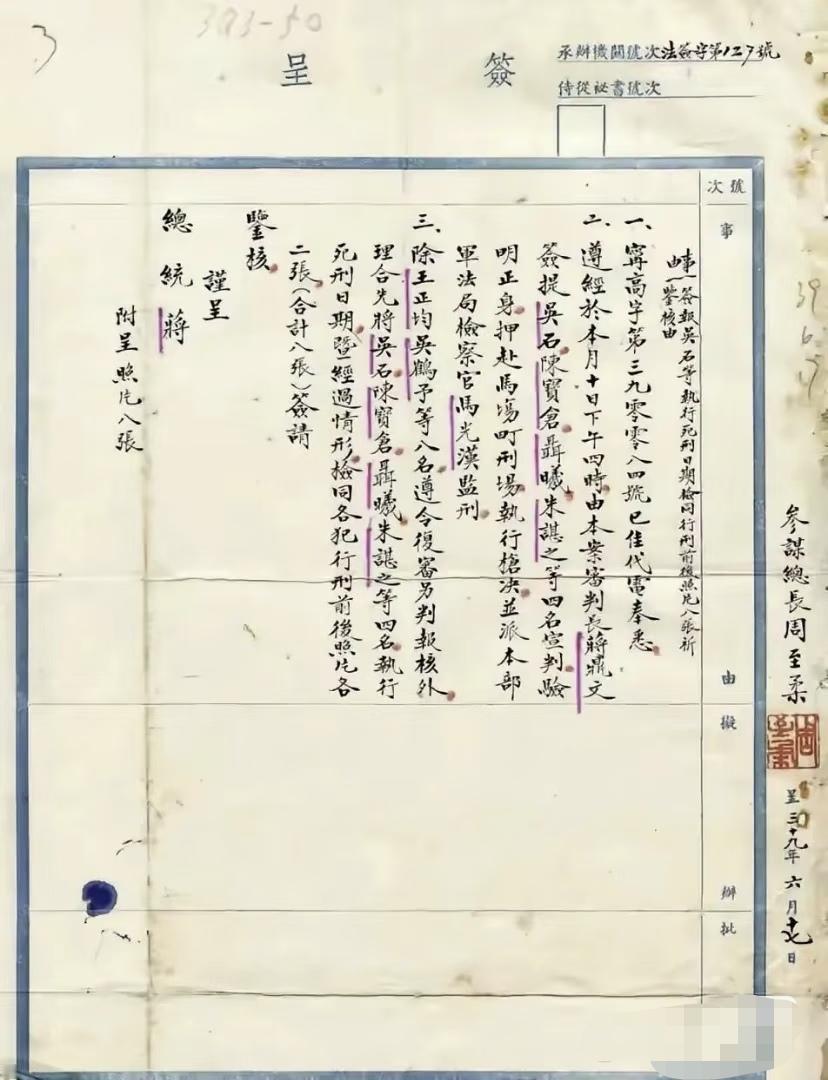 393-50
3
簽呈
承辦機關號次法簽字第127號
侍從祕書號次
號次
事由
擬辦
批
事由
一簽報吳石等執行死刑日期檢同行刑前後照片八張祈
鑒核由
一、寗高字第三九零零八四號已佳代電奉悉
二、遵經於本月十日下午四時由本案審判長蔣鼎文
簽提吳石陳寶倉聶曦朱諶之等四名宣判驗
明正身押赴馬場町刑場執行槍決並派本部
軍法局檢察官馬光漢監刑
三、除王正均吳鶴予等八名遵令復審另判報核外
理合先將吳石陳寶倉聶曦朱諶之等四名執行
死刑日期暨一經過情形檢同各犯行刑前後照片各
二張(合計八張)簽請
鑒核
謹呈
總統蔣
附呈照片八張
參謀總長周至柔
呈三十九年六月十七日